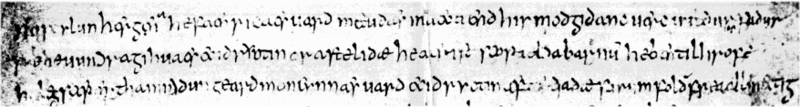 Nu scylun hergan hefaenricaes uard metudæs maecti end his modgidanc uerc uuldurfadur
sue he uundra gihuaes eci dryctin or astelidæ he aerist scop aelda barnū heben til hrofe
haleg scepen. tha middungeard moncynnæs uard eci dryctin æfter tiadæ firum foldu frea allmectig